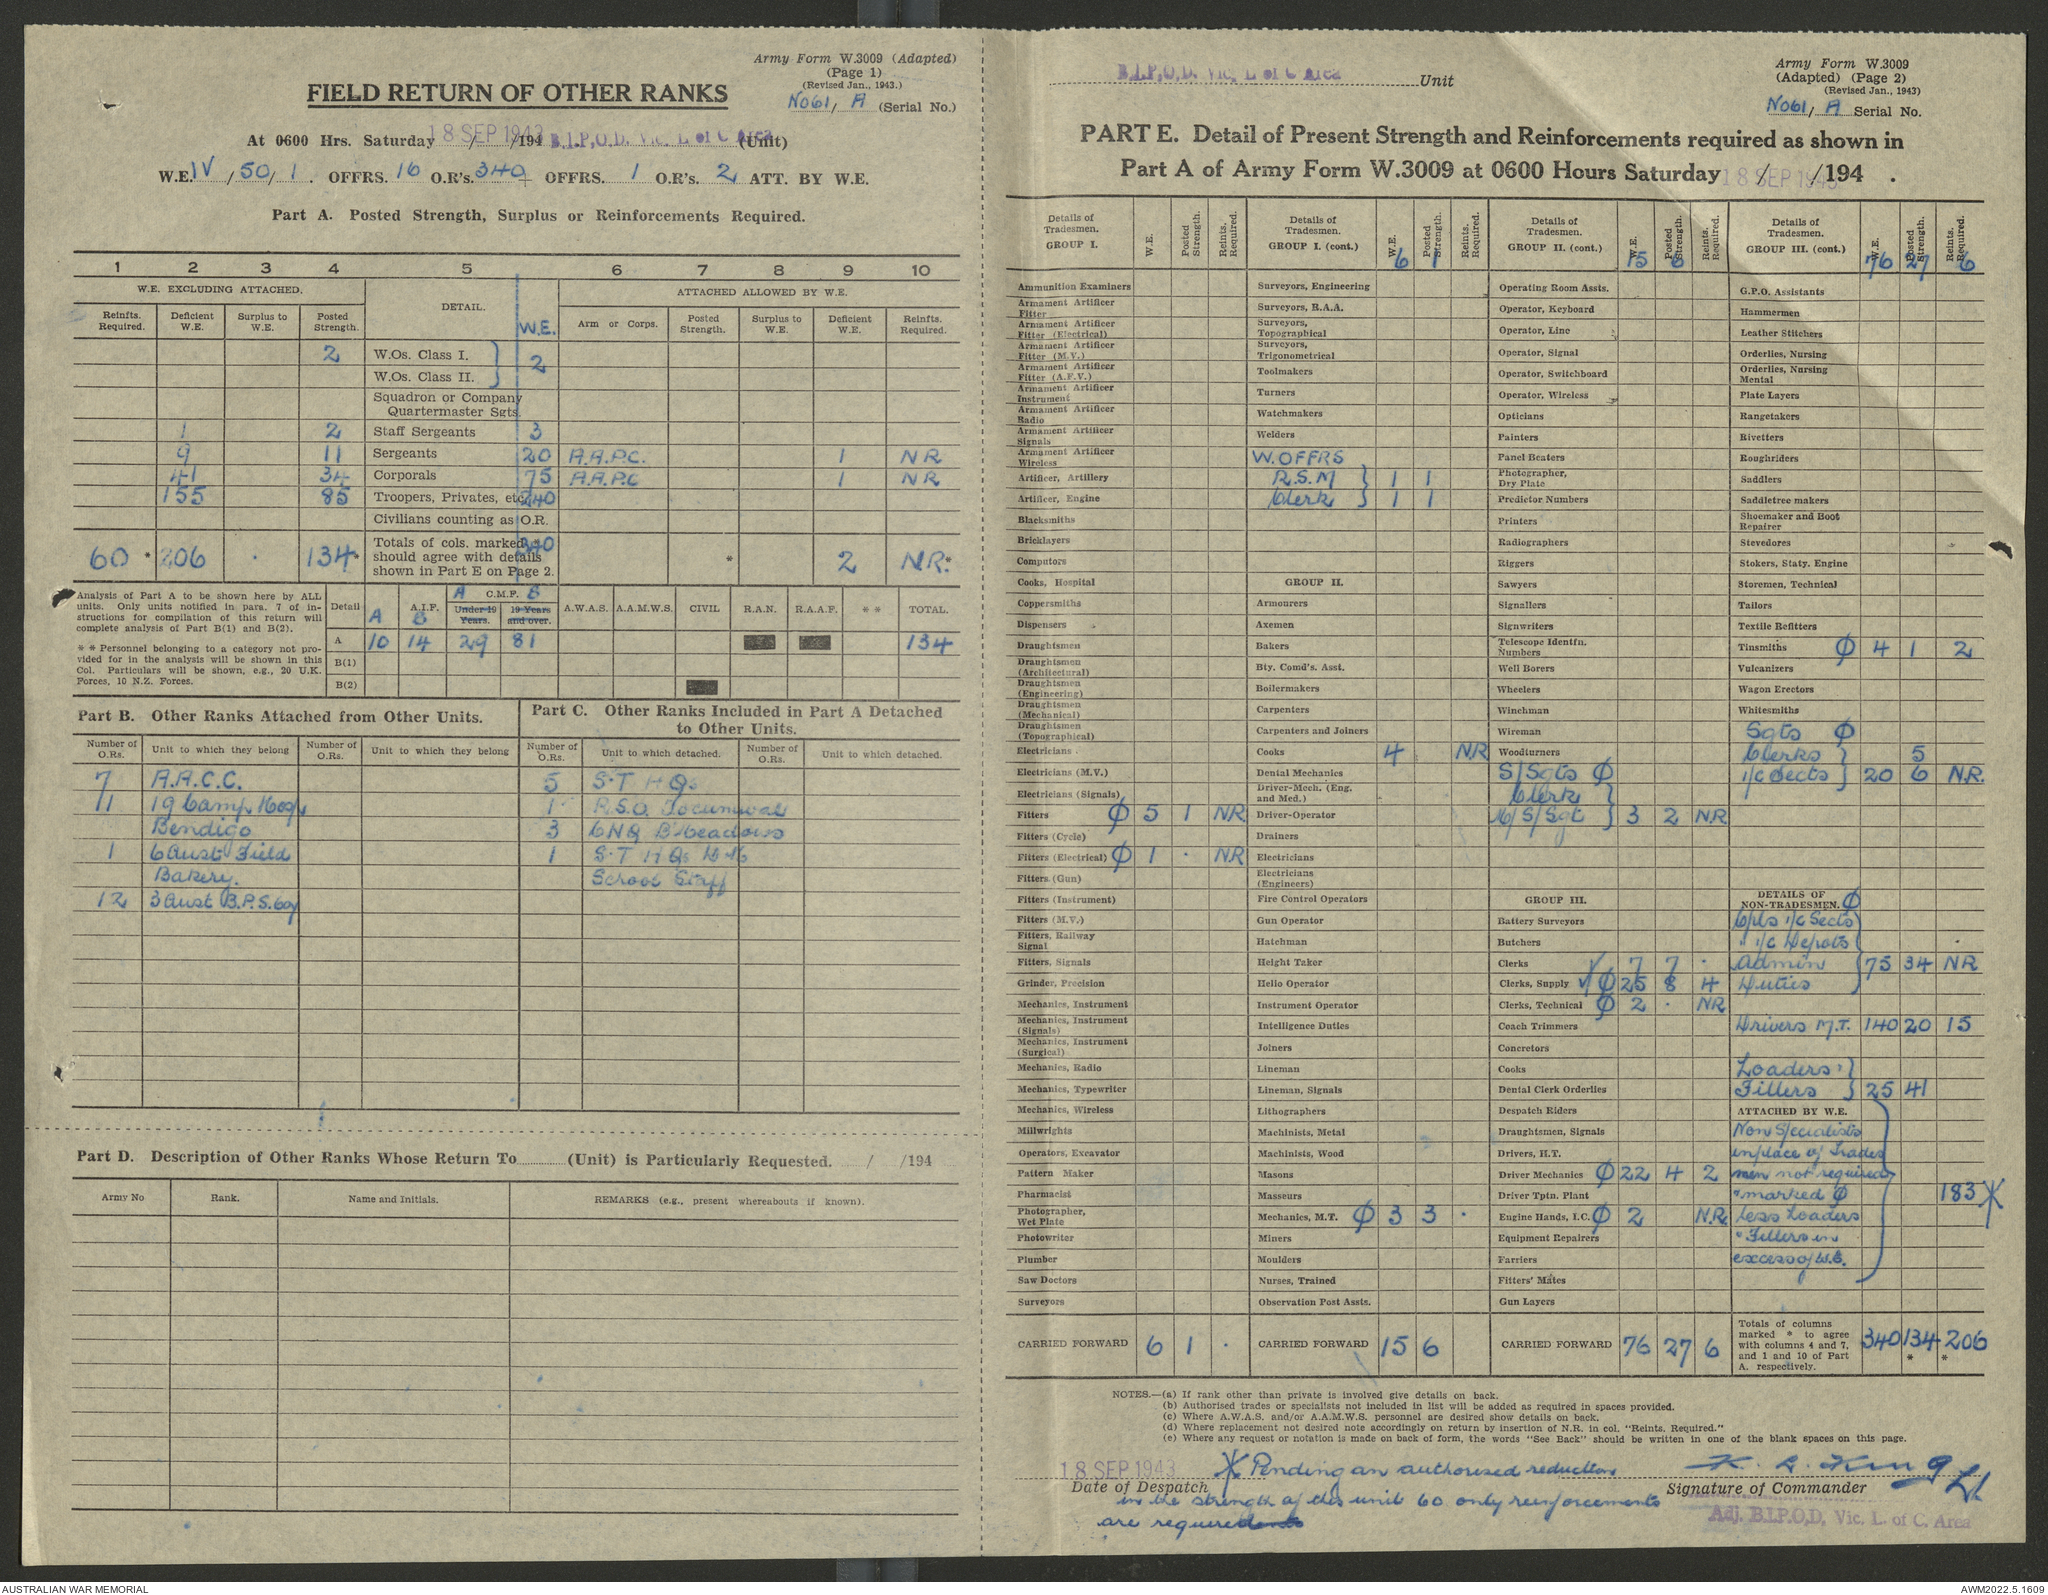 Army Form W.3009 (Adapted)
(Page 1)
(Revised Jan., 1943.)
No61/ A (Serial No.)
FIELD RETURN OF OTHER RANKS
At 0600 Hrs. Saturday 18 SEP 1943 / /194 B.I.P.O.D. Vic. L of C Area (Unit)
W.E. IV / 50 / 1 . OFFRS. 16 O.R's. 340 + OFFRS. 1 O.R's. 2 ATT. BY W.E.
Part A. Posted Strength, Surplus or Reinforcements Required.
1 2 3 4 5 6 7 8 9 10
W.E. EXCLUDING ATTACHED. DETAIL. W.E. ATTACHED ALLOWED BY W.E.
Reinfts. Required. Deficient W.E. Surplus to W.E. Posted Strength. Arm or Corps. Posted Strength. Surplus to W.E. Deficient W.E. Reinfts. Required.
2 W.Os. Class I. } 2
W.Os. Class II.
Squadron or Company Quartermaster Sgts.
1 2 Staff Sergeants 3
9 11 Sergeants 20 A.A.P.C. 1 NR
41 34 Corporals 75 A.A.P.C 1 NR
155 85 Troopers, Privates, etc. 240
Civilians counting as O.R.
60 * 206 . 134 * Totals of cols. marked * should agree with details shown in Part E on Page 2. 340 * 2 NR. *
Analysis of Part A to be shown here by ALL units. Only units notified in para. 7 of instructions for compilation of this return will complete analysis of Part B(1) and B(2).
* * Personnel belonging to a category not provided for in the analysis will be shown in this Col. Particulars will be shown, e.g., 20 U.K. Forces, 10 N.Z. Forces.
Detail A A.I.F. B A C.M.F. B Under 19 Years. 19 Years and over. A.W.A.S. A.A.M.W.S. CIVIL R.A.N. R.A.A.F. * * TOTAL.
A 10 14 29 81 134
B(1)
B(2)
Part B. Other Ranks Attached from Other Units.
Number of O.Rs. Unit to which they belong Number of O.Rs. Unit to which they belong
7 A.A.C.C.
11 19 Camp Hosp,
Bendigo
1 6 Aust Field
Bakery.
12 3 Aust B.P.S. Coy
Part C. Other Ranks Included in Part A Detached to Other Units.
Number of O.Rs. Unit to which detached. Number of O.Rs. Unit to which detached.
5 S.T HQs
1 R.S.O. Tocumwal
3 CHQ B'meadows
1 S.T HQs
School Staff
Part D. Description of Other Ranks Whose Return To (Unit) is Particularly Requested. / /194
Army No Rank. Name and Initials. REMARKS (e.g., present whereabouts if known).
B.I.P.O.D. Vic. L of C Area Unit
Army Form W.3009
(Adapted) (Page 2)
(Revised Jan., 1943)
No61/ A Serial No.
PART E. Detail of Present Strength and Reinforcements required as shown in
Part A of Army Form W.3009 at 0600 Hours Saturday 18 SEP 1943 / /194 .
Details of Tradesmen. GROUP I. W.E. Posted Strength. Reints. Required.
Ammunition Examiners
Armament Artificer Fitter
Armament Artificer Fitter (Electrical)
Armament Artificer Fitter (M.V.)
Armament Artificer Fitter (A.F.V.)
Armament Artificer Instrument
Armament Artificer Radio
Armament Artificer Signals
Armament Artificer Wireless
Artificer, Artillery
Artificer, Engine
Blacksmiths
Bricklayers
Computors
Cooks, Hospital
Coppersmiths
Dispensers
Draughtsmen
Draughtsmen (Architectural)
Draughtsmen (Engineering)
Draughtsmen (Mechanical)
Draughtsmen (Topographical)
Electricians
Electricians (M.V.)
Electricians (Signals)
Fitters Φ 5 1 NR
Fitters (Cycle)
Fitters (Electrical) Φ 1 . NR
Fitters (Gun)
Fitters (Instrument)
Fitters (M.V.)
Fitters, Railway Signal
Fitters, Signals
Grinder, Precision
Mechanics, Instrument
Mechanics, Instrument (Signals)
Mechanics, Instrument (Surgical)
Mechanics, Radio
Mechanics, Typewriter
Mechanics, Wireless
Millwrights
Operators, Excavator
Pattern Maker
Pharmacist
Photographer, Wet Plate
Photowriter
Plumber
Saw Doctors
Surveyors
CARRIED FORWARD 6 1 .
Details of Tradesmen. GROUP I. (cont.) W.E. Posted Strength. Reints. Required.
6 1
Surveyors, Engineering
Surveyors, R.A.A.
Surveyors, Topographical
Surveyors, Trigonometrical
Toolmakers
Turners
Watchmakers
Welders
W. OFFRS
R.S.M } 1 1
Clerk } 1 1
GROUP II.
Armourers
Axemen
Bakers
Bty. Comd's. Asst.
Boilermakers
Carpenters
Carpenters and Joiners
Cooks 4 NR
Dental Mechanics
Driver-Mech. (Eng. and Med.)
Driver-Operator
Drainers
Electricians
Electricians (Engineers)
Fire Control Operators
Gun Operator
Hatchman
Height Taker
Helio Operator
Instrument Operator
Intelligence Duties
Joiners
Lineman
Lineman, Signals
Lithographers
Machinists, Metal
Machinists, Wood
Masons
Masseurs
Mechanics, M.T. Φ 3 3 .
Miners
Moulders
Nurses, Trained
Observation Post Assts.
CARRIED FORWARD 15 6
Details of Tradesmen. GROUP II. (cont.) W.E. Posted Strength. Reints. Required.
15 6
Operating Room Assts.
Operator, Keyboard
Operator, Line
Operator, Signal
Operator, Switchboard
Operator, Wireless
Opticians
Painters
Panel Beaters
Photographer, Dry Plate
Predictor Numbers
Printers
Radiographers
Riggers
Sawyers
Signallers
Signwriters
Telescope Identfn. Numbers
Well Borers
Wheelers
Winchman
Wireman
Woodturners
S/Sgts Φ
Clerk }
S/Sgt } 3 2 NR
GROUP III.
Battery Surveyors
Butchers
Clerks 7 7 .
Clerks, Supply Φ 25 8 4
Clerks, Technical Φ 2 . NR
Coach Trimmers
Concretors
Cooks
Dental Clerk Orderlies
Despatch Riders
Draughtsmen, Signals
Drivers, H.T.
Driver Mechanics Φ 22 4 2
Driver Tptn. Plant
Engine Hands, I.C. Φ 2 N.R.
Equipment Repairers
Farriers
Fitters' Mates
Gun Layers
CARRIED FORWARD 76 27 6
Details of Tradesmen. GROUP III. (cont.) W.E. Posted Strength. Reints. Required.
76 27 6
G.P.O. Assistants
Hammermen
Leather Stitchers
Orderlies, Nursing
Orderlies, Nursing Mental
Plate Layers
Rangetakers
Rivetters
Roughriders
Saddlers
Saddletree makers
Shoemaker and Boot Repairer
Stevedores
Stokers, Staty. Engine
Storemen, Technical
Tailors
Textile Refitters
Tinsmiths Φ 4 1 2
Vulcanizers
Wagon Erectors
Whitesmiths
Sgts Φ
Clerks } 5
i/c Sects } 20 6 N.R.
DETAILS OF NON-TRADESMEN. Φ
Cpls i/c Sects
" i/c Depots
Admin } 75 34 NR
Duties
Drivers M.T. 140 20 15
Loaders }
Fillers } 25 41
ATTACHED BY W.E.
Non Specialists
in place of Trades
men not required
" marked Φ 183 *
Less Loaders
" Fillers in
excess of W.E.
Totals of columns marked * to agree with columns 4 and 7, and 1 and 10 of Part A. respectively. 340 134 * 206 *
NOTES.—(a) If rank other than private is involved give details on back.
(b) Authorised trades or specialists not included in list will be added as required in spaces provided.
(c) Where A.W.A.S. and/or A.A.M.W.S. personnel are desired show details on back.
(d) Where replacement not desired note accordingly on return by insertion of N.R. in col. "Reints. Required."
(e) Where any request or notation is made on back of form, the words "See Back" should be written in one of the blank spaces on this page.
18 SEP 1943 * Pending an authorised reduction
Date of Despatch Signature of Commander
in the strength of this unit 60 only reinforcements
are required
Adj. B.I.P.O.D. Vic. L. of C. Area
AUSTRALIAN WAR MEMORIAL
AWM2022.5.1609